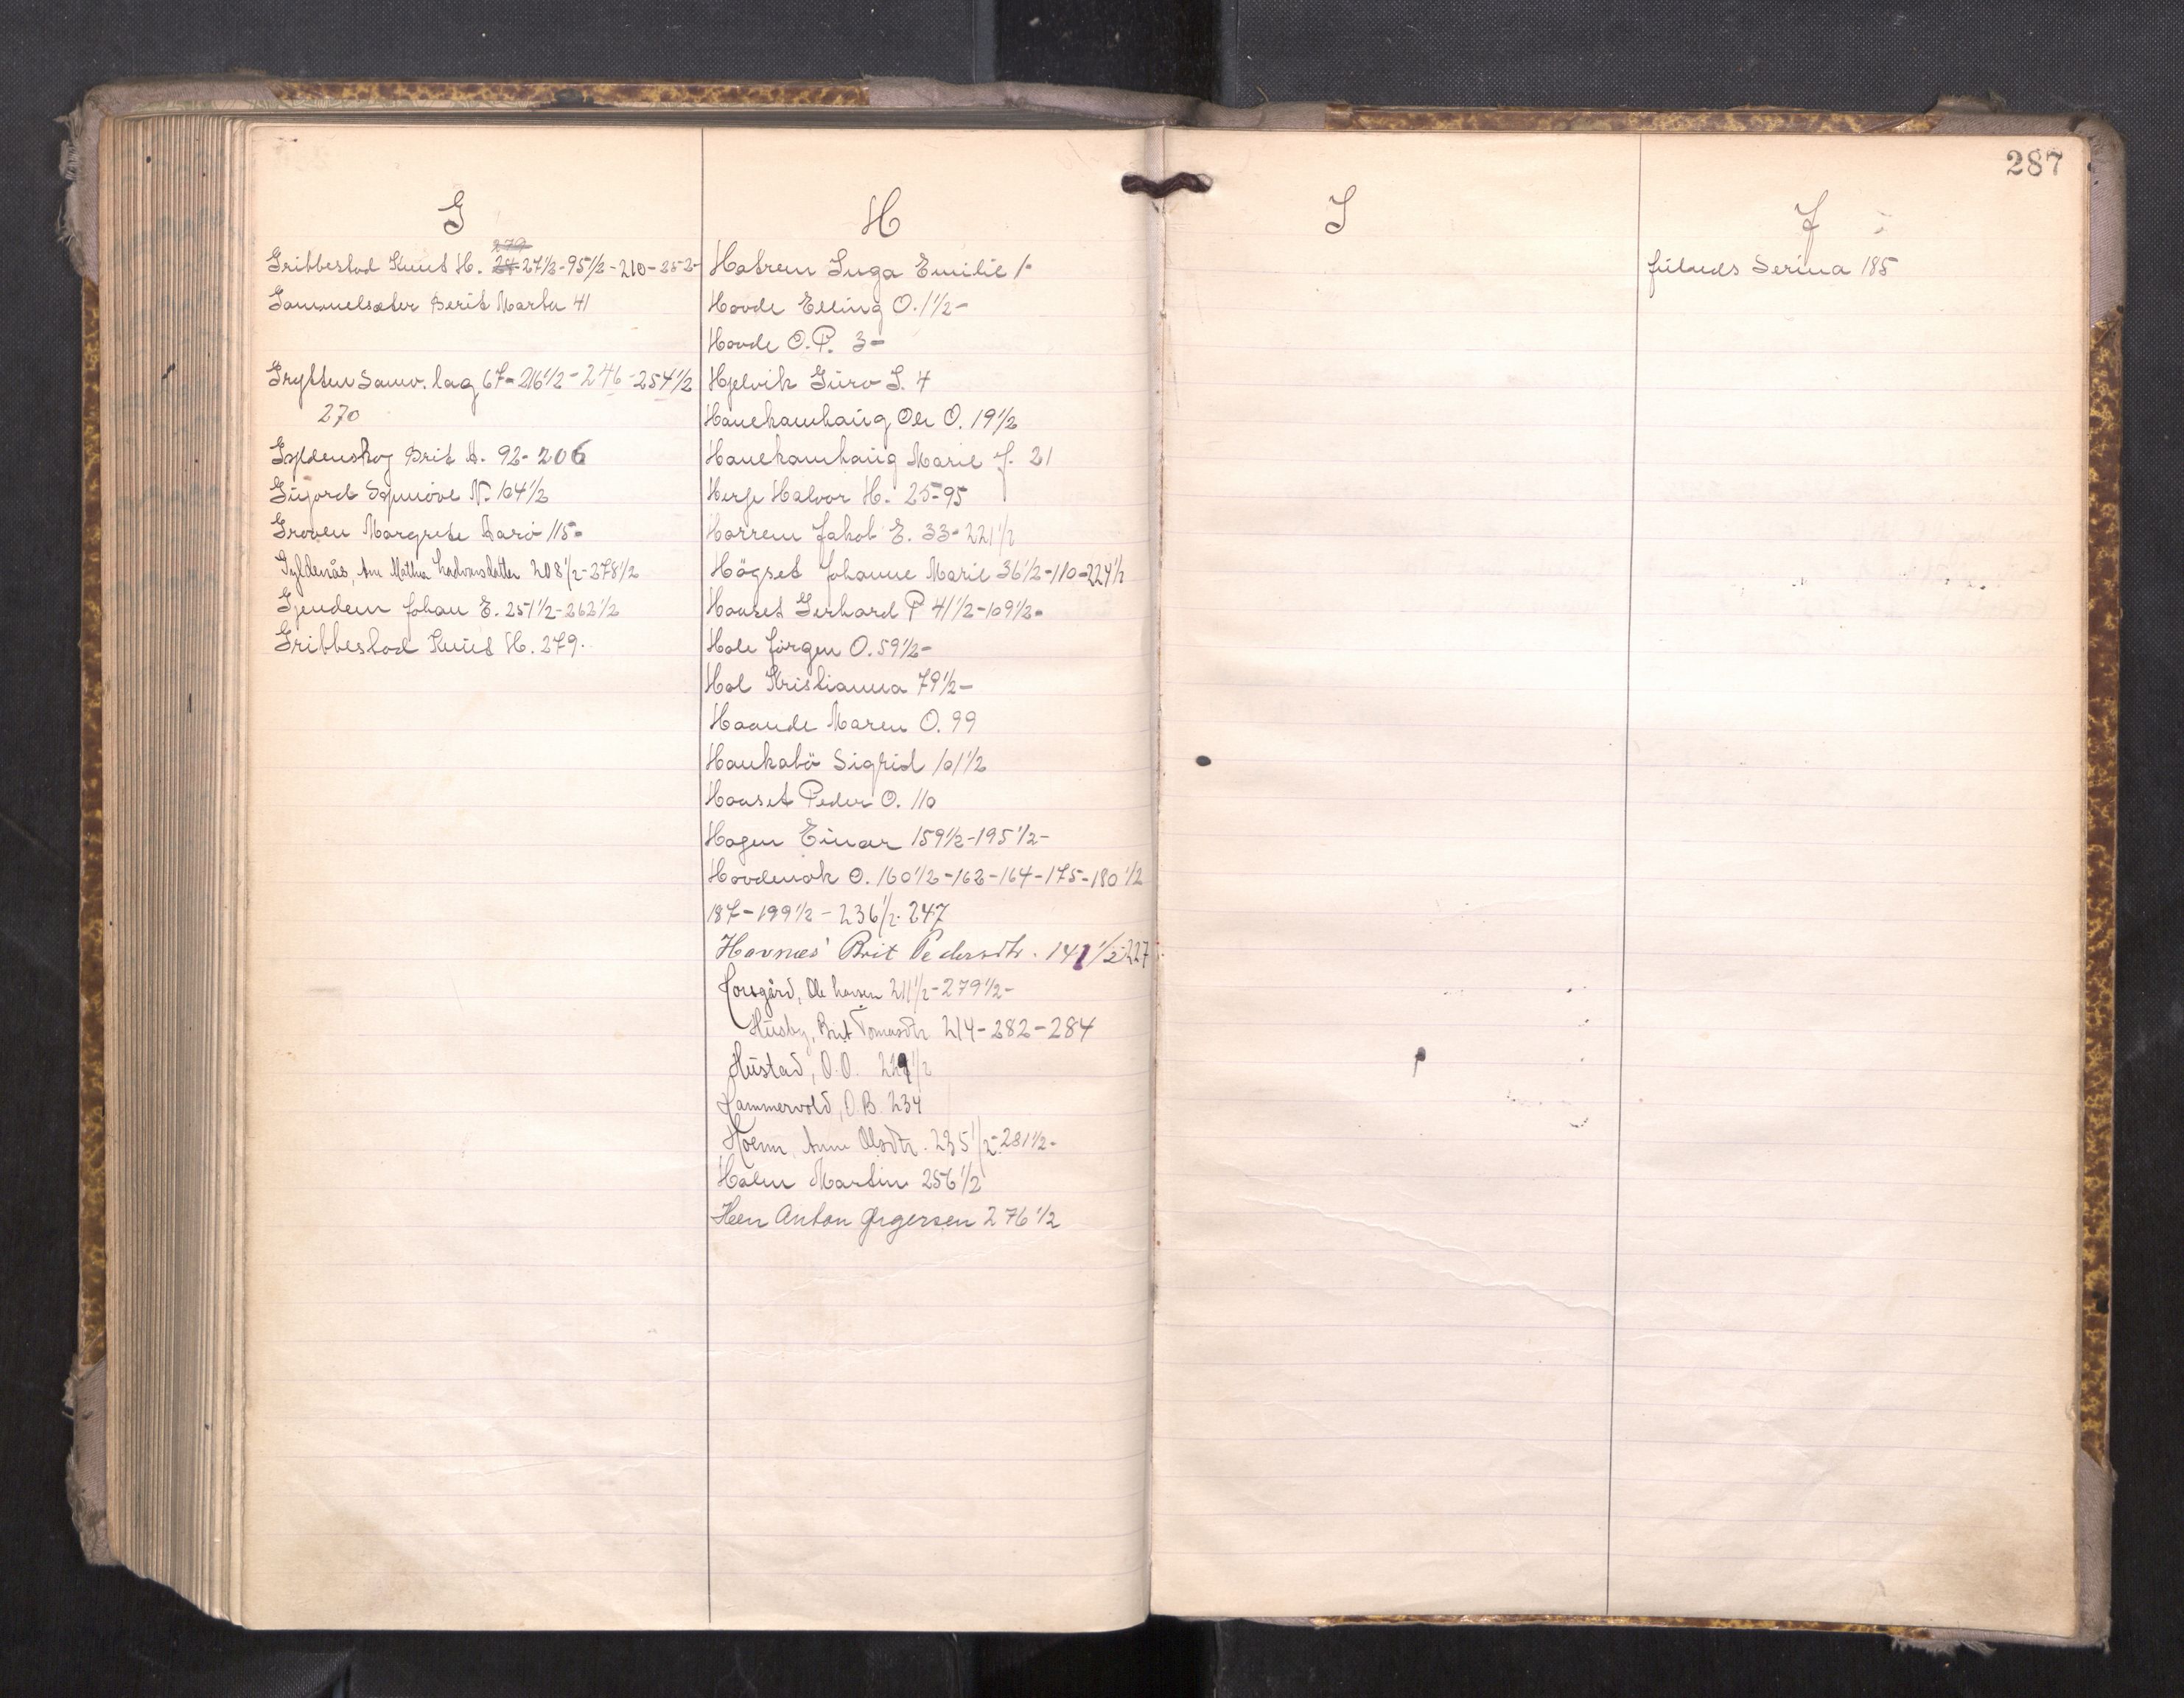 287
G
279
Gribbestad Knut H. 24-27½-95½-210-252-
Gammelsæter Berit Marta 41
Grytten Samv. lag 67-216½-246-254½
270
Gyldenskog Brit A. 92-206
Gujord Synnöve N. 104½
Groven Margrete Karö 115-
Gyldenås, Ane Mathea Halvorsdatter 208½-278½
Gjendem Johan E. 251½-262½
Gribbestad Knut H. 279.
H
Hatrem Inga Emilie 1-
Hovde Elling O. 1½-
Hovde O.P. 3-
Hjelvik Guro I. 4
Hanekamhaug Ole O. 19½
Hanekamhaug Marie J. 21
Herje Halvor H. 25-95
Harrem Jakob E. 33-221½
Högset Johanne Marie 36½-110-224½
Hauset Gerhard P 41½-109½-
Hole Jörgen O. 59½-
Hol Kristianna 79½-
Haande Maren O. 99
Haukabö Sigrid 101½
Hauset Peder O. 110
Hagen Einar 159½-195½-
Hovdenak O. 160½-162-164-175-180½
187-199½-236½-247
Havnæs Brit Pedersdtr. 141½-227
Horsgård, Ole Larsen 211½-279½-
Husby, Brit Tomasdtr 214-282-284
Hustad, O.O. 229½
Hammervold, O.B. 234
Hoem, Anne Olsdtr. 235½-281½-
Holm Martin 256½
Hen Anton Jrgersen 276½
I
J
Julnes Serina 185